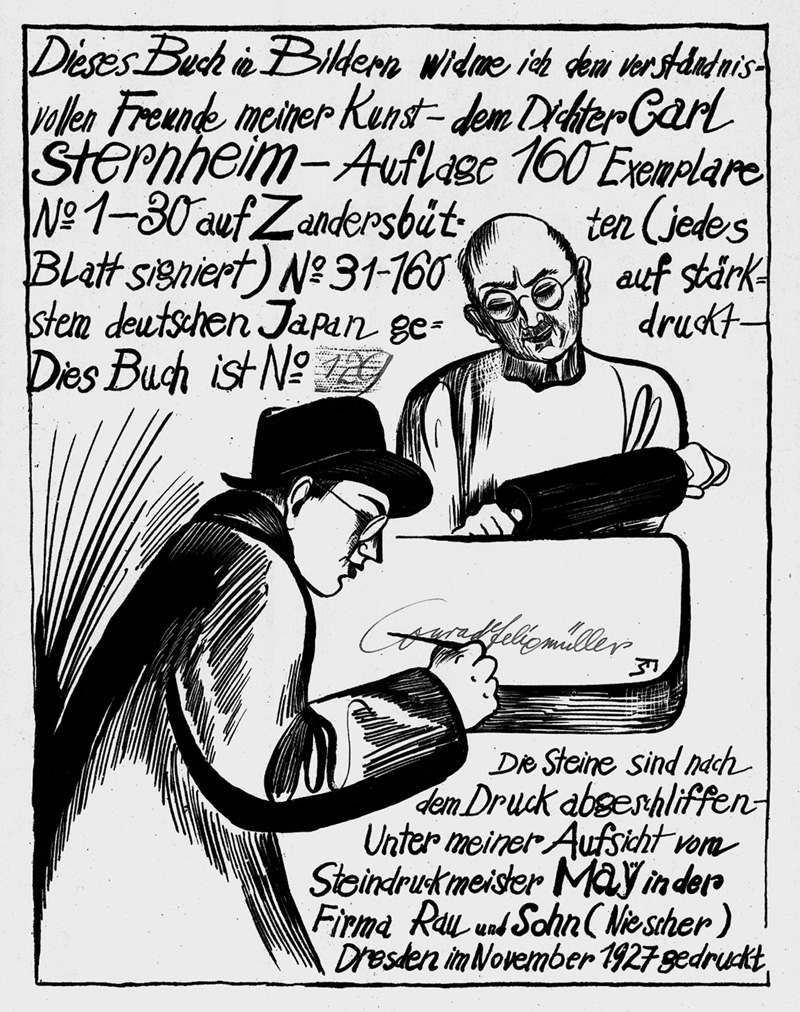 Dieses Buch in Bildern widme ich dem verständnis=
vollen Freunde meiner Kunst – dem Dichter Carl
Sternheim – Auflage 160 Exemplare
No 1–30 auf Zandersbüt= ten (jedes
Blatt signiert) No 31-160 auf stärk=
stem deutschen Japan ge= druckt –
Dies Buch ist No 129
Conrad Felixmüller
Die Steine sind nach
dem Druck abgeschliffen –
Unter meiner Aufsicht vom
Steindruckmeister Maÿ in der
Firma Rau und Sohn (Niescher)
Dresden im November 1927 gedruckt